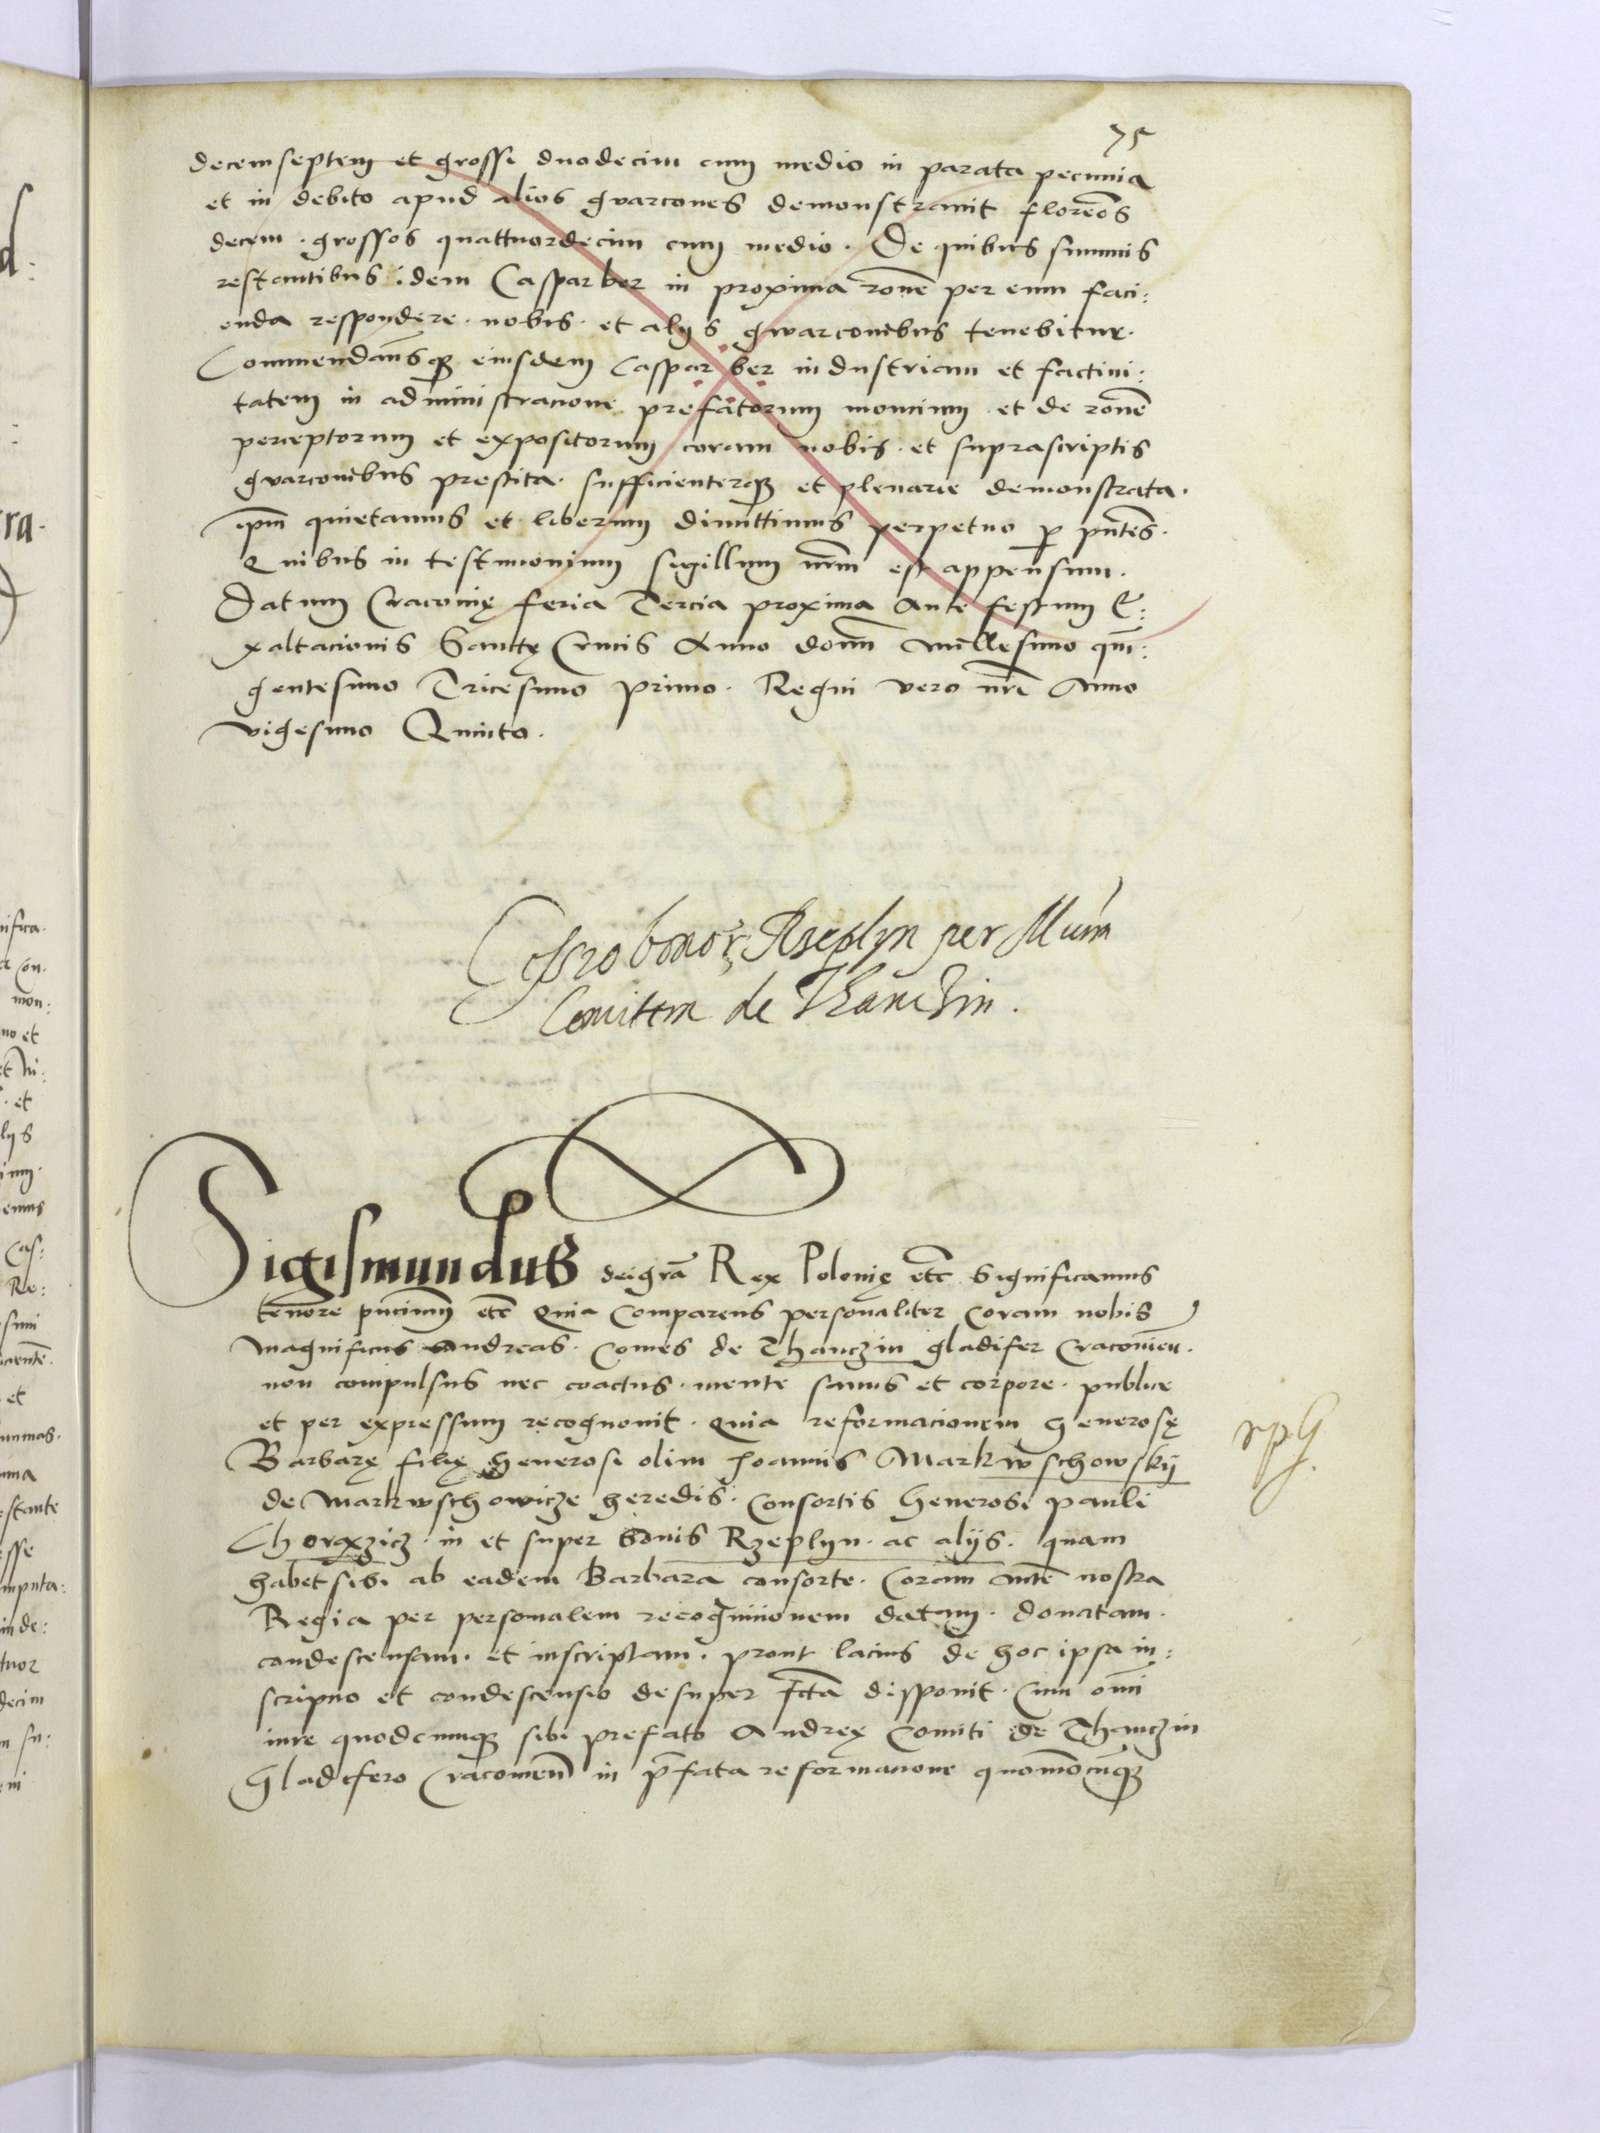 75
decemseptem et grossi duodecim cum medio in parata pecunia
et in debito apud alios gwarcones demonstravit floreos
decem · grossos quattuordecim cum medio · De quibus summis
restantibus idem Caspar ber in proxima rone per eum faci:
enda respondere · nobis · et alijs gwarconibus tenebitur ·
Commendansque eiusdem Caspar ber industriam et factivi:
tatem in administracione prefatorum moncium · et de rone
perceptorum et expositorum coram nobis · et suprascriptis
gwarconibus prestita · sufficienterque et plenarie demonstrata ·
ipm quietamus et liberum dimittimus perpetuo p pntes ·
Quibus in testimonium sigillum nrm est appensum ·
Datum Cracovię feria Tercia proxima Ante festum E:
xaltacionis Sanctę Crucis Anno domi Millesimo quin:
gentesimo Tricesimo primo · Regni vero nri Anno
vigesimo Quinto ·
Cessio bonor Rzeplyn per Mum
Comitem de Thanczin ·
Sigismundus dei gra Rex Polonię etc Significamus
tenore pncium etc Quia Comparens personaliter Coram nobis
Magnificus Andreas · Comes de Thanczin gladifer Cracovien ·
non compulsus nec coactus · mente sanus et corpore · publice
et per expressum recognovit · Quia reformacionem Generosę
Barbarę filię Generosi olim Joannis Markwschowskij
de Markwschowicze heredis · Consortis Generosi pauli
Chorązicz · in et super bonis Rzeplyn · ac alijs · quam
habet sibi ab eadem Barbara consorte · Coram Mte nostra
Regia per personalem recognicionem datam · donatam ·
condescensam · et inscriptam · prout lacius de hoc ipsa in:
scripcio et condescensio desuper fcta disponit · Cum omi
iure quodcumque sibi prefato Andreę Comiti de Thanczin
Gladifero Cracovien in pfata reformacione quomocumque